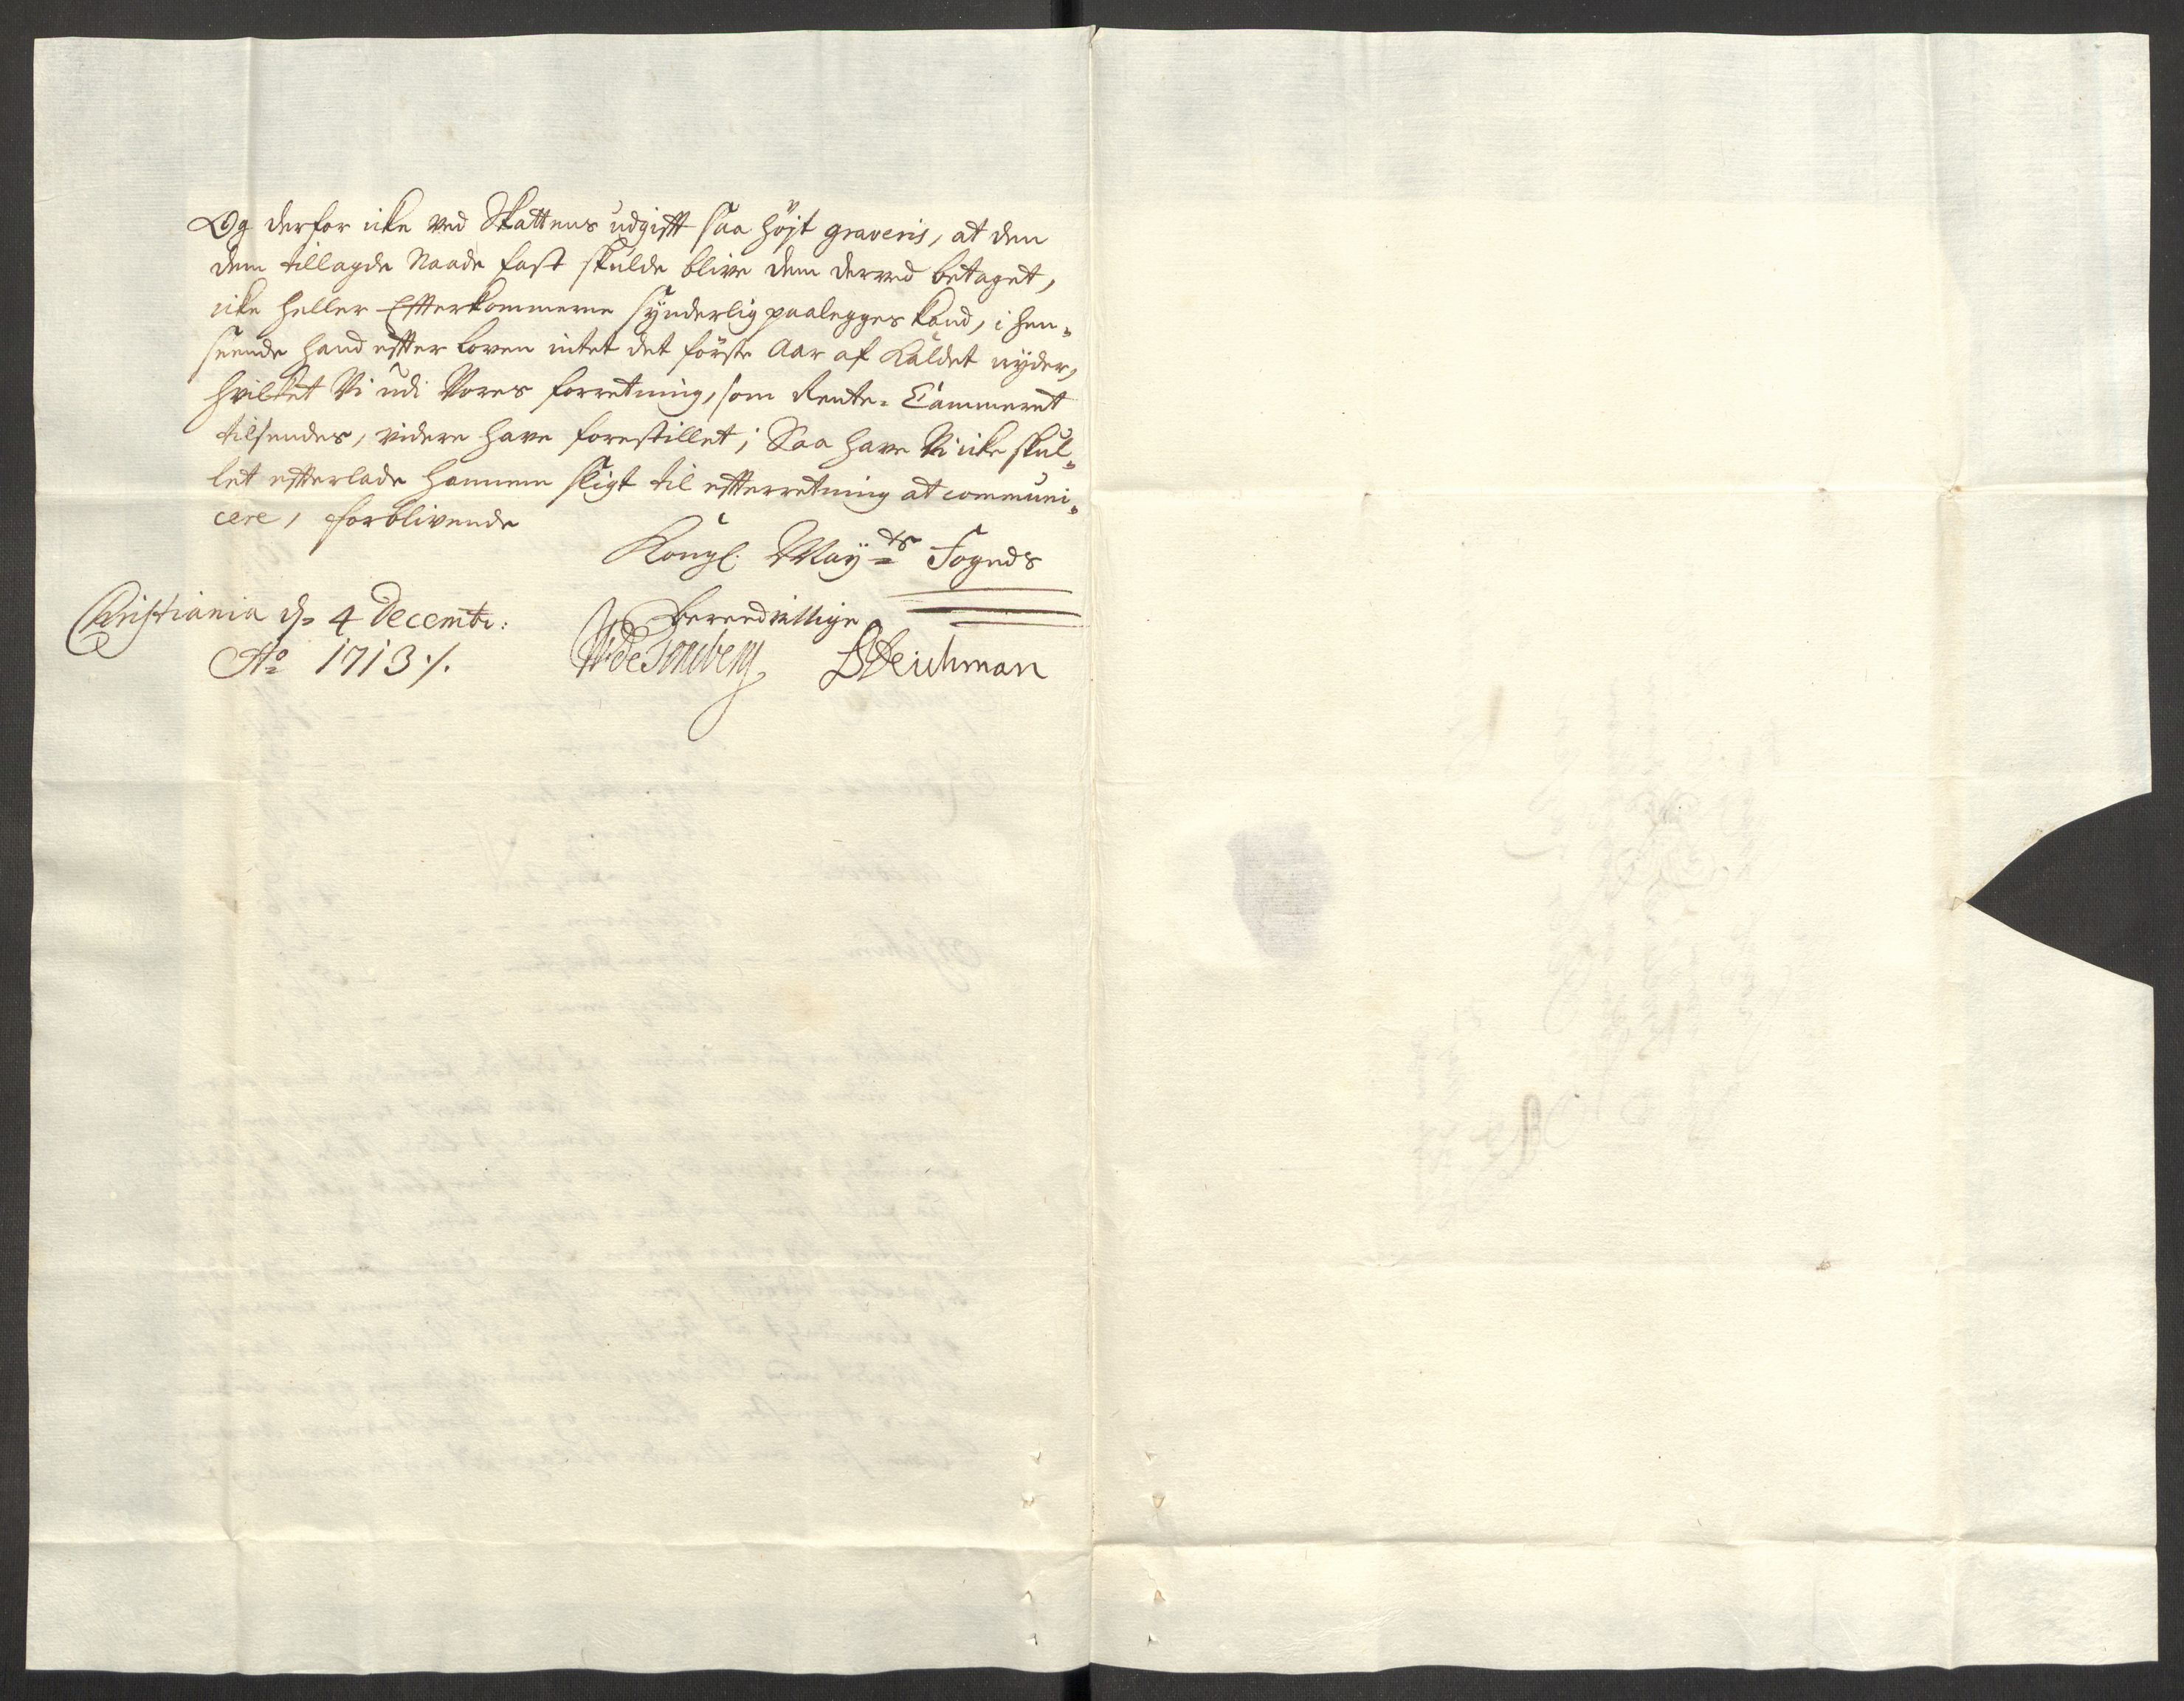 Og derfor icke ved Skattens udgifft saa højt graveris, at den
dem tillagde Naade fast skulde blive dem derved betaget,
icke heller Effterkommerne synderlig paalegges kand, i hen-
seende hand effter loven intet det förste Aar af Kaldet nyder,
hvilket Vi udi Vores forretning, som Rente-Cammeret
tilsendes, videre have forestillet; Saa have Vi icke skul-
let effterlade hannem sligt til effterretning at communi-
cere, forblivende
Kongl. May:ts Fogeds
beredvillige
Christiania d. 4 Decembr:
Ao 1713 ./.
W: de Tonsberg DDeichman